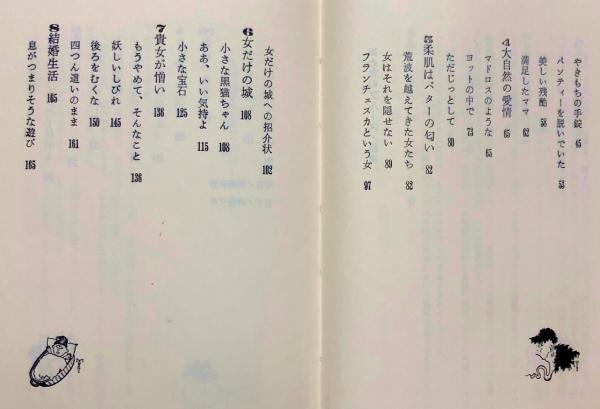 やきもちの手錠 45
パンティーを脱いでいた 53
美しい残酷 58
満足したママ 62
4 大自然の愛情 65
マドロスのような 65
ヨットの中で 73
ただじっとして 80
5 柔肌はバターの匂い 82
荒波を越えてきた女たち 82
女はそれを隠せない 89
フランチェスカという女 97
女だけの城への招介状 102
6 女だけの城 108
小さな黒猫ちゃん 108
ああ、いい気持よ 115
小さな宝石 125
7 貴女が憎い 136
もうやめて、そんなこと 136
妖しいしびれ 145
後ろをむくな 150
四つん這いのまま 161
8 結婚生活 165
息がつまりそうな遊び 165